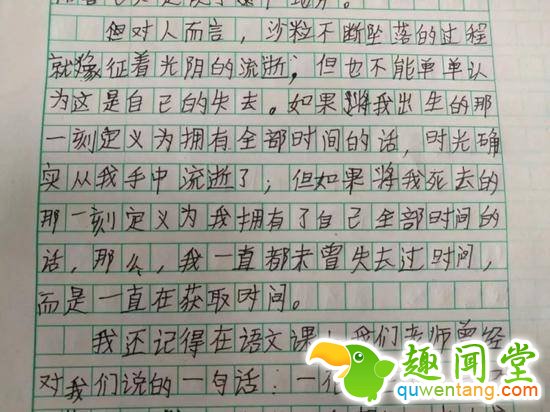 但对人而言，沙粒不断坠落的过程
就像征着光阴的流逝，但也不能单单认
为这是自己的失去。如果将我出生的那
一刻定义为拥有全部时间的话，时光确
实从我手中流逝了；但如果将我死去的
那一刻定义为我拥有了自己全部时间的
话，那么，我一直都未曾失去过时间，
而是一直在获取时间。
我还记得在语文课上我们老师曾经
对我们说的一句话：一
趣闻堂
quwentang.com